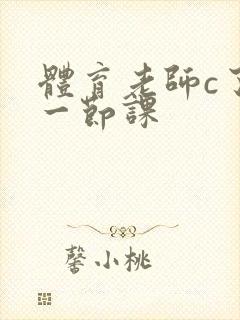 體育老師c了
一節課
馨小桃